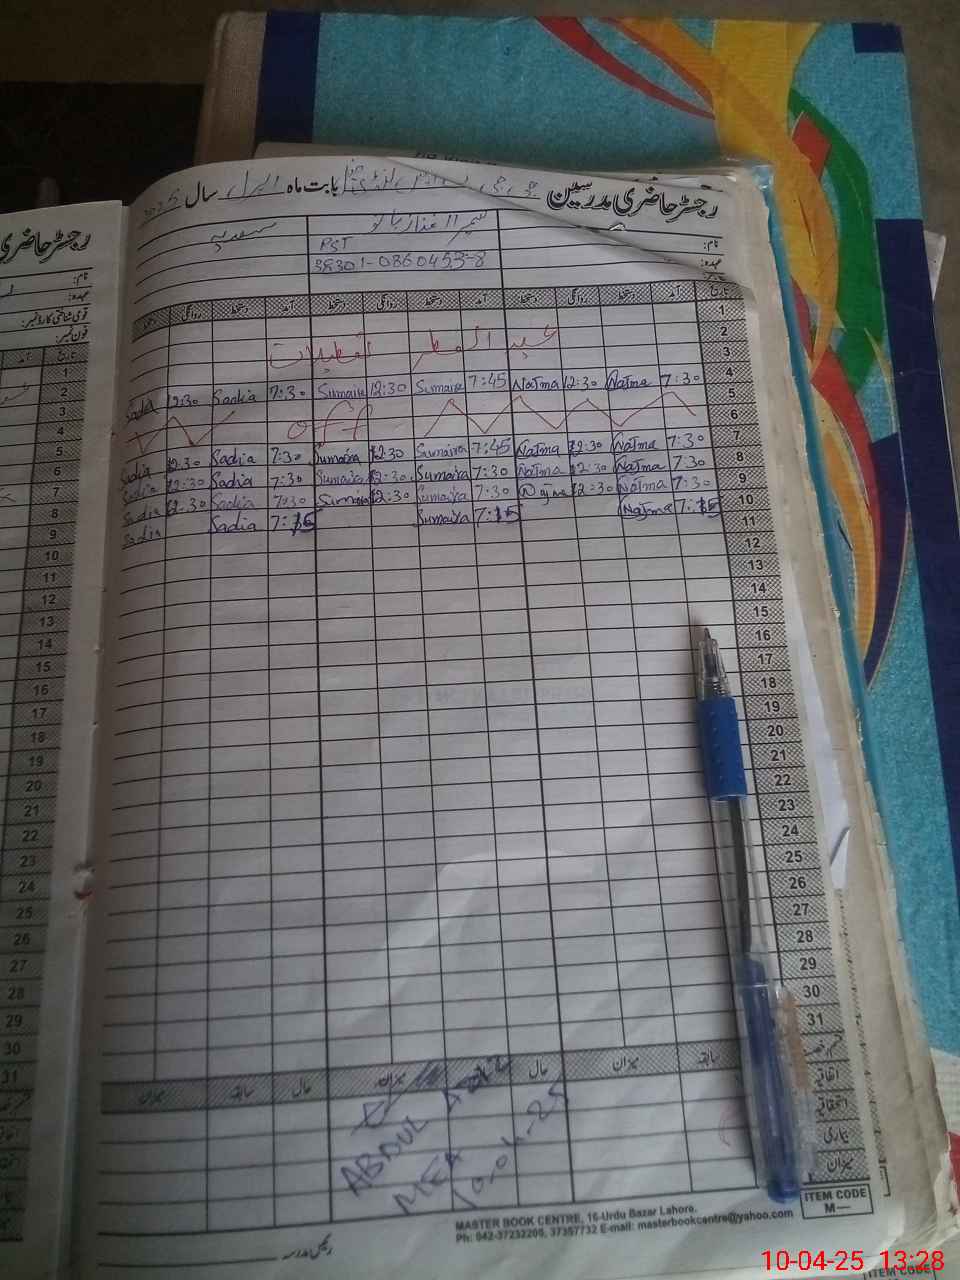 رجسٹر حاضری مدرسین
بابت ماہ اپریل سال 2025
نام:
عہدہ:
سمیرا غفار بانو سعدیہ
PST
38301-0860453-8
تاریخ آمد دستخط روانگی دستخط آمد دستخط روانگی دستخط آمد دستخط روانگی دستخط
1
2
عید الفطر تعطیلات
3
4
Sadia 12:30 Sadia 7:30 Sumaira 12:30 Sumaira 7:45 Najma 12:30 Najma 7:30
5
off
6
7
Sadia 12:30 Sadia 7:30 Sumaira 12:30 Sumaira 7:45 Najma 12:30 Najma 7:30
8
Sadia 12:30 Sadia 7:30 Sumaira 12:30 Sumaira 7:30 Najma 12:30 Najma 7:30
9
Sadia 12:30 Sadia 7:30 Sumaira 12:30 Sumaira 7:30 Najma 12:30 Najma 7:30
10
Sadia Sadia 7:15 Sumaira 7:15 Najma 7:15
11
12
13
14
15
16
17
18
19
20
21
22
23
24
25
26
27
28
29
30
31
سابقہ میزان حال میزان حال سابقہ میزان
اتفاقیہ
استحقاقیہ
بیماری
میزان
ABDUL
MEA
10-04-25
رئیس مدرسہ
MASTER BOOK CENTRE, 16-Urdu Bazar Lahore.
Ph: 042-37232205, 37357732 E-mail: masterbookcentre@yahoo.com
ITEM CODE
M—
رجسٹر حاضری
نام:
عہدہ:
قومی شناختی کارڈ نمبر:
فون نمبر:
تاریخ آمد
1
2
3
4
5
6
7
8
9
10
11
12
13
14
15
16
17
18
19
20
21
22
23
24
25
26
27
28
29
30
31
ITEM CODE
10-04-25 13:28